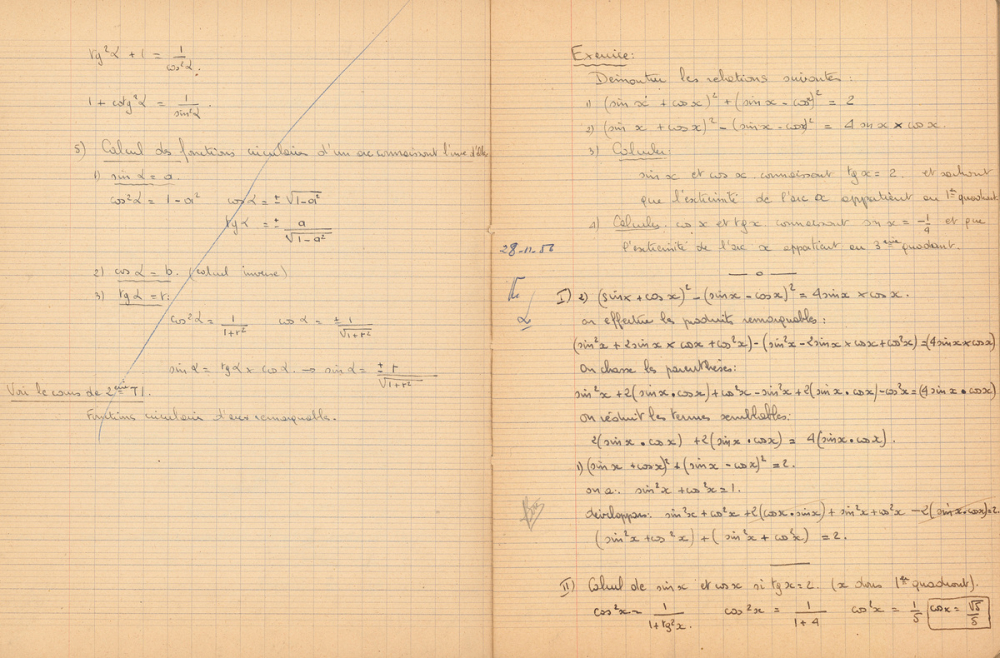 tg²α + 1 = 1/cos²α.
1 + cotg²α = 1/sin²α.
5) Calcul des fonctions circulaires d'un arc connaissant l'une d'elles
1) sin α = a.
cos²α = 1 - a² cos α = ± √(1-a²)
tg α = ± a/√(1-a²)
2) cos α = b. (calcul inverse)
3) tg α = r.
cos²α = 1/(1+r²) cos α = ± 1/√(1+r²)
sin α = tg α × cos α → sin α = ± r/√(1+r²)
Voir le cours de 2ème T1.
Fonctions circulaires d'arcs remarquables.
Exercice:
Démontrer les relations suivantes:
1) (sin x + cos x)² + (sin x - cos x)² = 2
2) (sin x + cos x)² - (sin x - cos x)² = 4 sin x × cos x.
3) Calculer
sin x et cos x connaissant tg x = 2. et sachant
que l'extrémité de l'arc x appartient au 1er quadrant
4) Calculer cos x et tg x connaissant sin x = -1/4 et que
l'extrémité de l'arc x appartient au 3ème quadrant.
28-11-56
I) 2) (sin x + cos x)² - (sin x - cos x)² = 4 sin x × cos x.
on effectue les produits remarquables:
(sin²x + 2 sin x × cos x + cos²x) - (sin²x - 2 sin x × cos x + cos²x) = (4 sin x × cos x)
On chasse les parenthèses:
sin²x + 2(sin x • cos x) + cos²x - sin²x + 2(sin x • cos x) - cos²x = (4 sin x • cos x)
on réduit les termes semblables:
2(sin x • cos x) + 2(sin x • cos x) = 4(sin x • cos x).
1) (sin x + cos x)² + (sin x - cos x)² = 2.
on a. sin²x + cos²x = 1.
développer: sin²x + cos²x + 2(cos x • sin x) + sin²x + cos²x - 2(sin x • cos x) = 2.
(sin²x + cos²x) + (sin²x + cos²x) = 2.
II) Calcul de sin x et cos x si tg x = 2. (x dans 1er quadrant).
cos²x = 1/(1+tg²x). cos²x = 1/(1+4) cos²x = 1/5 cos x = √5/5